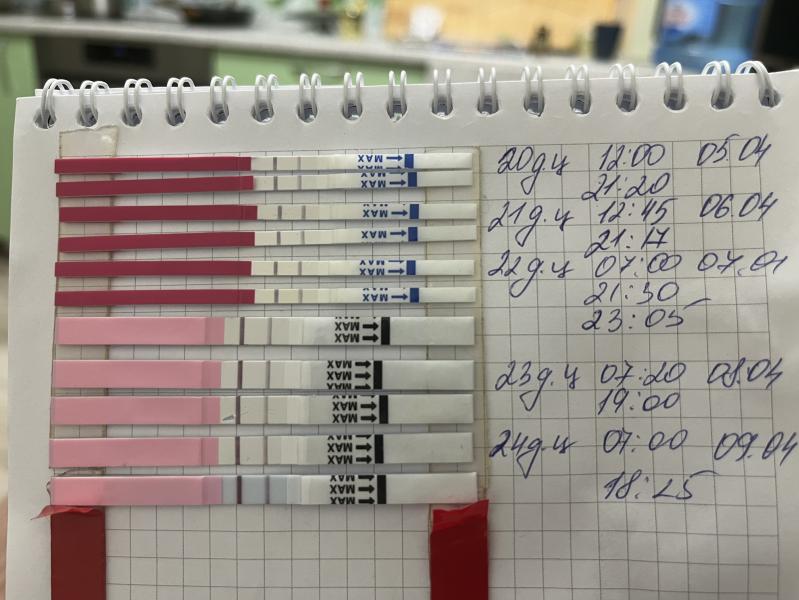 MAX 20 д.ц 12:00 05.04
MAX 21:20
MAX 21 д.ц 12:45 06.04
MAX 21:17
MAX 22 д.ц 07:00 07.04
MAX 21:30
MAX MAX 23:05
MAX MAX 23 д.ц 07:20 08.04
MAX MAX 19:00
MAX MAX 24 д.ц 07:00 09.04
MAX MAX 18:25